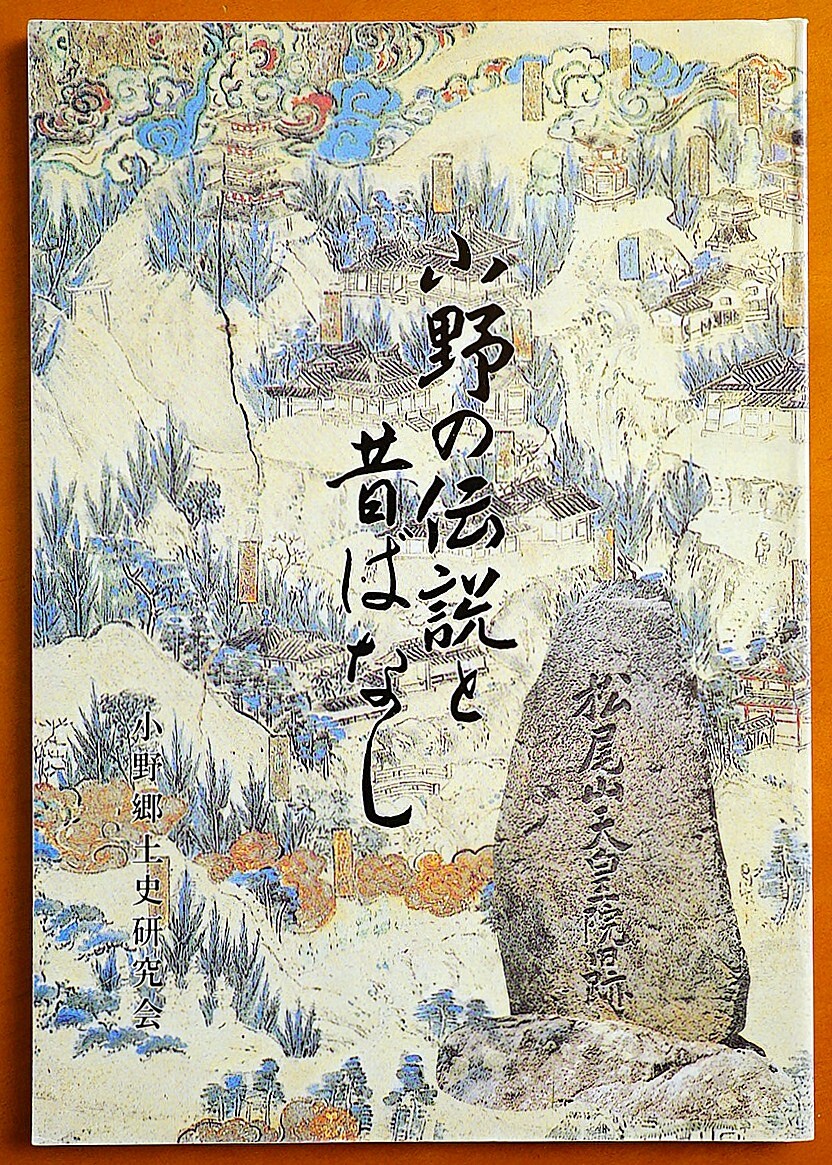 小野の伝説と
昔ばなし
松尾山天皇院旧跡
小野郷土史研究会